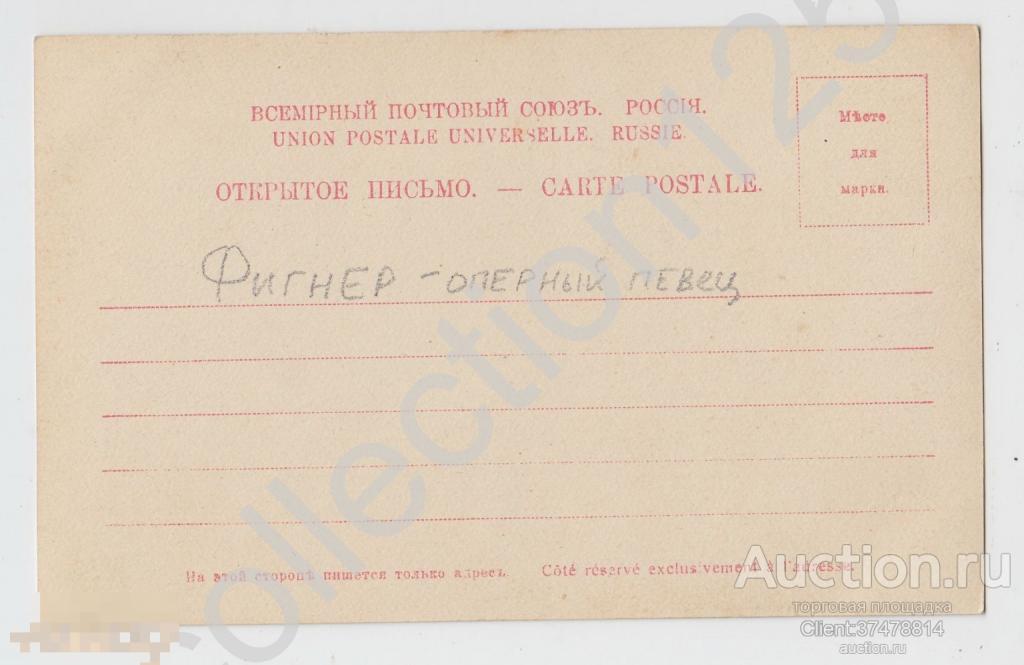 ВСЕМІРНЫЙ ПОЧТОВЫЙ СОЮЗЪ. РОССІЯ.
UNION POSTALE UNIVERSELLE. RUSSIE.
ОТКРЫТОЕ ПИСЬМО. — CARTE POSTALE.
Мѣсто
для
марки.
Фигнер - оперный певец
На этой сторонѣ пишется только адресъ. Côté réservé exclusivement à l'adresse.
collection 125
Auction.ru
торговая площадка
Client:37478814
auction.ru